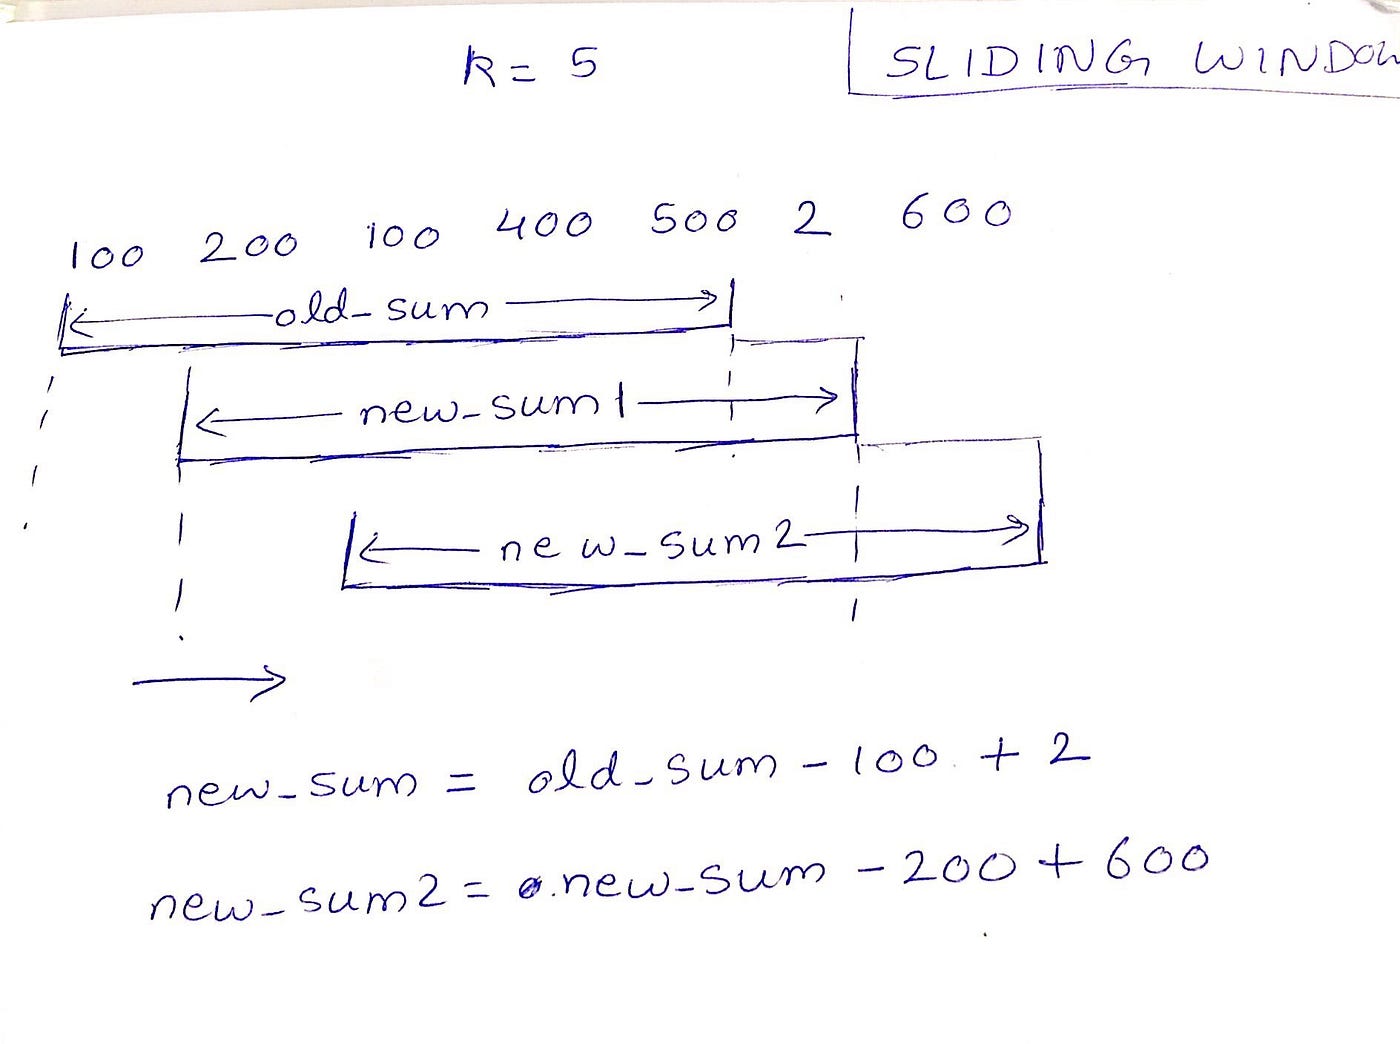 k = 5
SLIDING WINDOW
100 200 100 400 500 2 600
old_sum
new_sum1
new_sum2
new_sum = old_sum - 100 + 2
new_sum2 = new_sum - 200 + 600